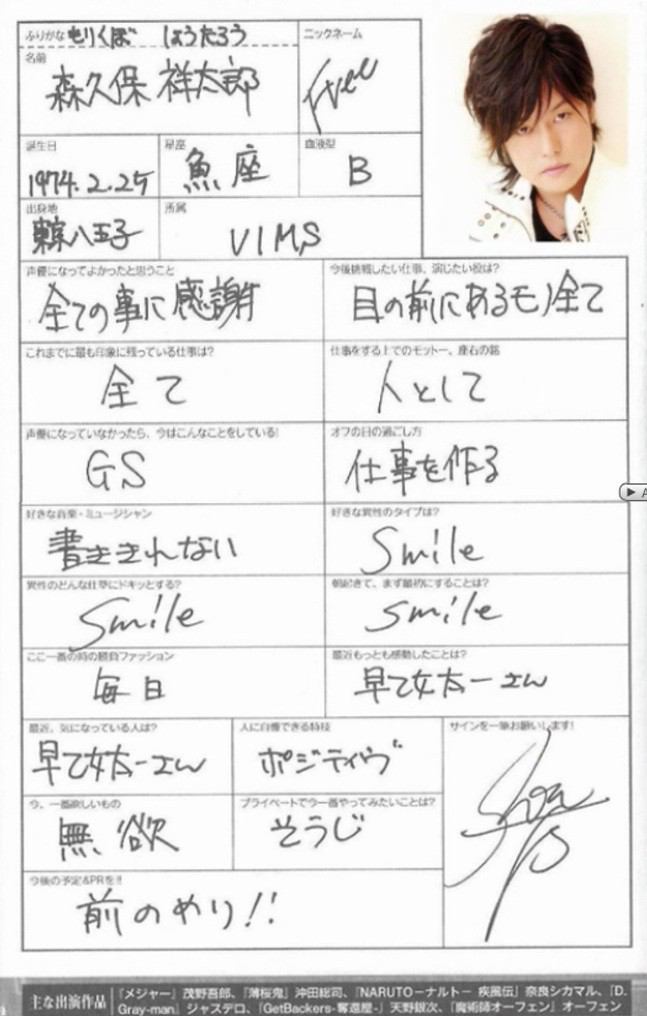 ふりがな もりくぼ しょうたろう
名前
森久保 祥太郎
ニックネーム
Free
誕生日
1974.2.25
星座
魚座
血液型
B
出身地
東京八王子
所属
VIMS
声優になってよかったと思うこと
全ての事に感謝
今後挑戦したい仕事、演じたい役は?
目の前にあるモノ全て
これまでに最も印象に残っている仕事は?
全て
仕事をする上でのモットー、座右の銘
人として
声優になっていなかったら、今はこんなことをしている!
GS
オフの日の過ごし方
仕事を作る
好きな音楽・ミュージシャン
書ききれない
好きな異性のタイプは?
Smile
異性のどんな仕草にドキッとする?
Smile
朝起きて、まず最初にすることは?
smile
ここ一番の時の勝負ファッション
毎日
最近もっとも感動したことは?
早乙女太一さん
最近、気になっている人は?
早乙女太一さん
人に自慢できる特技
ポジティヴ
サインを一筆お願いします!
今、一番欲しいもの
無欲
プライベートで今一番やってみたいことは?
そうじ
今後の予定&PRを!!
前のめり!!
主な出演作品
『メジャー』茂野吾郎、『薄桜鬼』沖田総司、『NARUTO－ナルト－ 疾風伝』奈良シカマル、『D.
Gray-man』ジャスデロ、『GetBackers-奪還屋-』天野銀次、『魔術師オーフェン』オーフェン